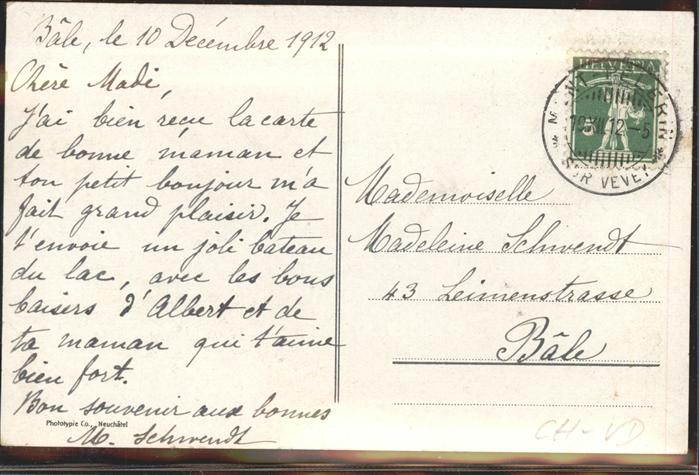 Bâle, le 10 Decémbre 1912
Chère Madi,
J'ai bien reçu la carte
de bonne maman et
ton petit bonjour m'a
fait grand plaisir. Je
t'envoie un joli bateau
du lac, avec les bons
baisers d'Albert et de
ta maman qui t'aime
bien fort.
Bon souvenir aux bonnes
M. Schwendt
Phototypie Co., Neuchâtel
HELVETIA
PELERIN
XII.12-5
SUR VEVEY
Mademoiselle
Madeleine Schwendt
43 Leimenstrasse
Bâle
CH-VD